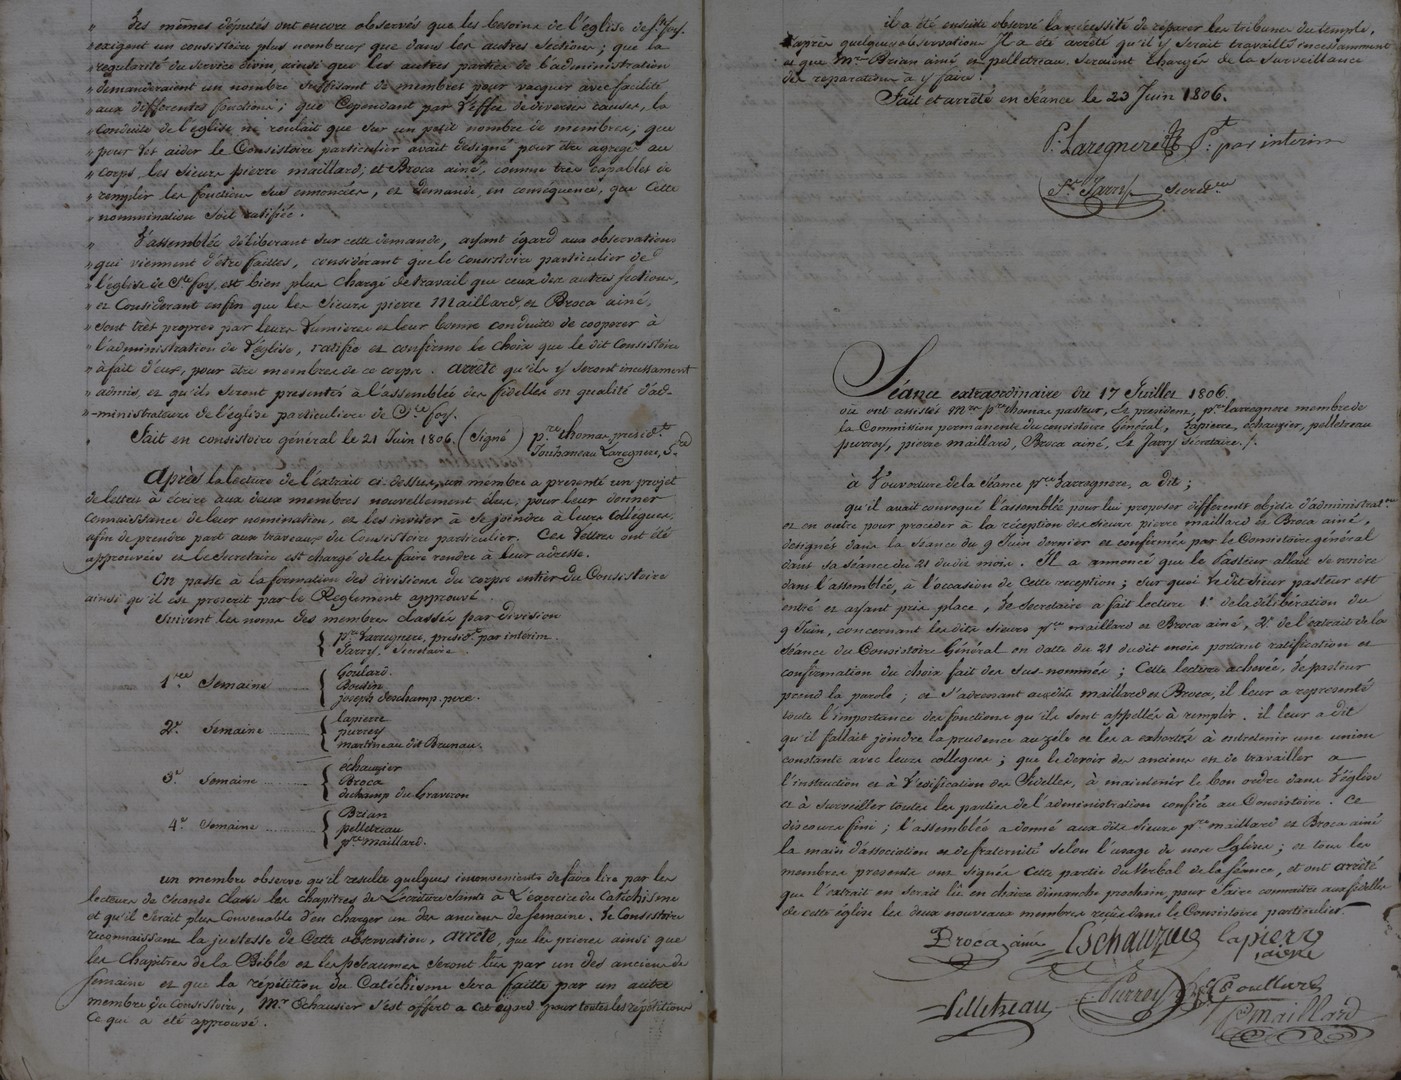 Les mêmes députés ont encore observés que les besoins de l'église de Ste foy.
" exigent un consistoire plus nombreux que dans les autres sections; que la
" regularité du service divin, ainsi que les autres parties de l'administration
" demanderaient un nombre suffisant de membres pour vacquer avec facilité
" aux differentes fonctions; que cependant par l'effet de diverses causes, la
" conduite de l'église ne roulait que sur un petit nombre de membres; que
" pour les aider le Consistoire particulier avait désigné pour être agregé au
" corps les sieurs pierre maillard, et Broca ainé, comme très capables de
" remplir les fonctions sus énoncées, et demande en conséquence, que cette
" nommination soit ratifiée.
" L'assemblée déliberant sur cette demande, ayant égard aux observations
" qui viennent d'être faittes, considérant que le consistoire particulier de
" l'église de Ste foy, est bien plus chargé de travail que ceux des autres sections,
" et Considerant enfin que les Sieurs pierre Maillard, et Broca ainé,
" sont très propres par leurs lumieres et leur bonne conduitte de cooperer à
" l'administration de l'église, ratifie et confirme le choix que le dit Consistoire
" à fait d'eux, pour être membres de ce corps. arrête qu'ils y seront incessament
" admis et qu'ils seront presentés à l'assemblée des fidelles en qualité d'ad-
" -ministrateurs de l'église particuliere de Ste foy.
" Fait en consistoire général le 21 Juin 1806. (Signé) pre thomas presidt
Jouhaneau Laregnere, Sre
Après la lecture de l'extrait ci-dessus, un membre a presenté un projet
de lettres à écrire aux deux membres nouvellement élus, pour leur donner
connaissance de leur nomination, et les inviter à se joindre à leurs Collègues,
afin de prendre part aux travaux du Consistoire particulier. Ces lettres ont été
approuvées et le Secretaire est chargé de les faire rendre à leur adresse.
On passe à la formation des divisions du corps entier du Consistoire
ainsi qu'il est prescrit par le Reglement approuvé.
Suivent les noms des membres classés par division
pre Laregnere, presidt par interim.
Jarry, Secretaire.
1re Semaine Goulard.
Boutin
joseph deschamp. pere.
2e Semaine lapierre
purrey
martineau dit Brunau.
3e Semaine echauzier
Broca
dechamp du Graveron
4e Semaine Brian
pelletreau
pre maillard.
un membre observe qu'il resulte quelques inconvenients de faire lire par les
lecteurs de seconde classe les chapitres de l'ecriture Sainte à l'exercice du Catéchisme
et qu'il serait plus convenable d'en charger un des anciens de semaine. Le Consistoire
reconnaissant la justesse de cette observation, arrête, que les prieres ainsi que
les chapitres de la Bible et les pseaumes seront lus par un des anciens de
semaine et que la répétition du Catéchisme sera faitte par un autre
membre du Consistoire, Mr Echausier s'est offert a cet égard pour toutes les répétitions
Ce qui a été approuvé.
il a été ensuite observé la nécessité de réparer les tribunes du temple,
d'après quelques observations Il a été arrêté qu'il y serait travaillé incessamment
et que Mrs Brian ainé et pelletreau seraient chargés de la Surveillance
des reparations à y faire.
Fait et arrêté en Séance le 23 Juin 1806.
P. Laregnere Pt: par interim
Pre Jarry secretre
Séance extraordinaire du 17 Juillet 1806.
où ont assistés Mrs pre thomas pasteur, Le president, pre laregnere membre de
la Commission permanente du consistoire Général, Lapierre, echauzier, pelletreau
purrey, pierre maillard, Broca ainé, et Jarry Secretaire. /.
à l'ouverture de la Séance pre Larregnere, a dit;
qu'il avait convoqué l'assemblée pour lui proposer différents objets d'administraten
et en outre pour proceder à la réception des sieurs pierre maillard et Broca ainé,
designés dans la seance du 9 Juin dernier et confirmés par le Consistoire général
dans sa séance du 21 du dit mois. Il a annoncé que le Pasteur allait se rendre
dans l'assemblée, à l'occasion de cette reception; sur quoi le dit sieur pasteur est
entré et ayant pris place, le Secretaire a fait lecture 1° de la délibération du
9 Juin, concernant les dits sieurs pre maillard et Broca ainé, 2° de l'extrait de la
séance du Consistoire Général en datte du 21 du dit mois portant ratification et
confirmation du choix fait des sus-nommés; Cette lecture achevée, le pasteur
prend la parole; et s'adressant auxdits maillard et Broca, il leur a representé
toute l'importance des fonctions qu'ils sont appellés à remplir. il leur a dit
qu'il fallait joindre la prudence au zèle et les a exhortés à entretenir une union
constante avec leurs collegues; que le devoir des anciens est de travailler a
l'instruction et à l'edification des Fideles, à maintenir le bon ordre dans l'église
et à surveiller toutes les parties de l'administration confiée au Consistoire. Ce
discours fini; l'assemblée a donné aux dits Sieurs pre maillard et Broca ainé
la main d'association et de fraternité selon l'usage de nos Eglises; et tous les
membres presents ont signés cette partie du Verbal de la séance, et ont arrêté
que l'extrait en serait lû en chaire dimanche prochain, pour faire connaitre aux fidelles
de cette église les deux nouveaux membres reçus dans le Consistoire particulier.
Broca ainé Eschauzier lapierre
ainé
Pelletreau Purrey
P maillard